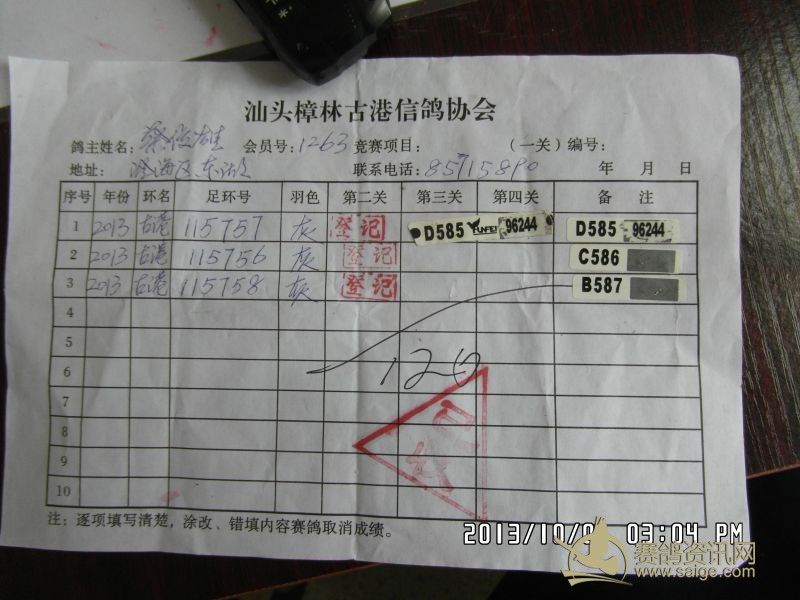 汕头樟林古港信鸽协会
鸽主姓名: 会员号:1263 竞赛项目: (一关)编号:
地址: 澄海区东湖 联系电话:85715890 年 月 日
序号 年份 环名 足环号 羽色 第二关 第三关 第四关 备 注
1 2013 古港 115757 灰 登记 D585 YUNFEI 96244 D585 96244
2 2013 古港 115756 灰 登记 C586
3 2013 古港 115758 灰 登记 B587
4
5
6
120
7
8
9
10
注:逐项填写清楚,涂改、错填内容赛鸽取消成绩。
03:04 PM
赛鸽资讯网
www.saige.com